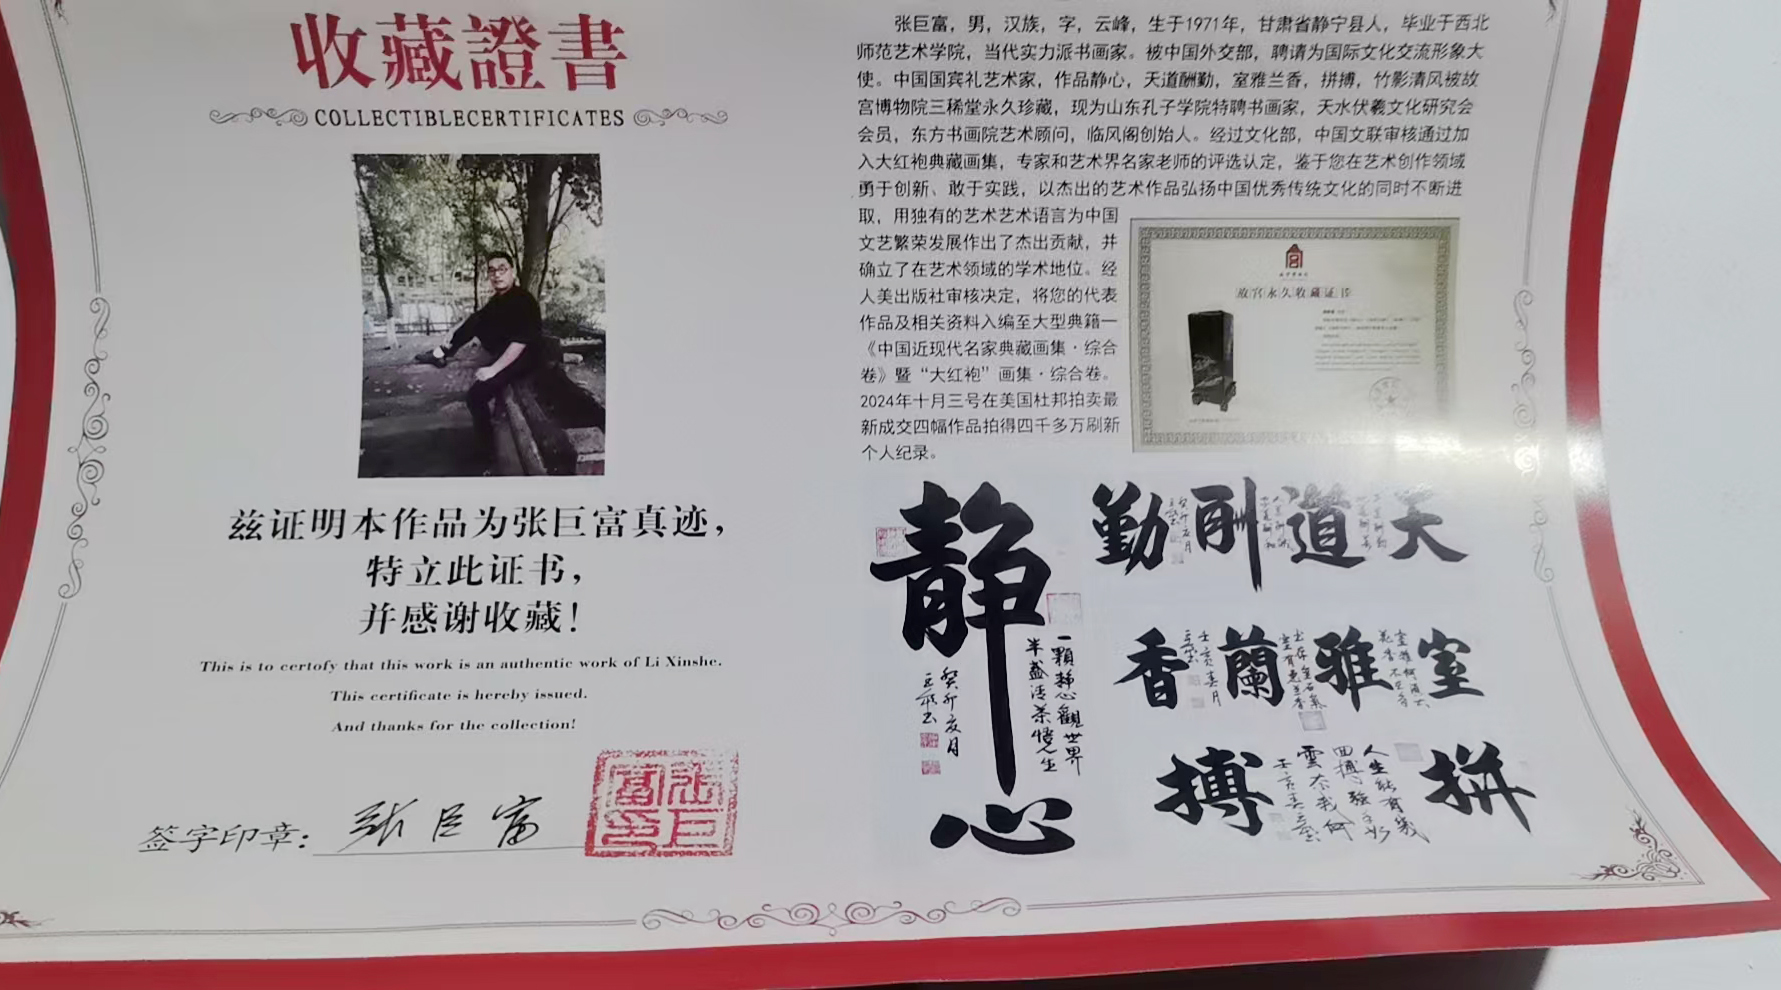 收藏證書
COLLECTIBLECERTIFICATES
兹证明本作品为张巨富真迹，
特立此证书，
并感谢收藏！
This is to certofy that this work is an authentic work of Li Xinshe.
This certificate is hereby issued.
And thanks for the collection!
签字印章：张巨富
张巨富，男，汉族，字，云峰，生于1971年，甘肃省静宁县人，毕业于西北
师范艺术学院，当代实力派书画家。被中国外交部，聘请为国际文化交流形象大
使。中国国宾礼艺术家，作品静心，天道酬勤，室雅兰香，拼搏，竹影清风被故
宫博物院三稀堂永久珍藏，现为山东孔子学院特聘书画家，天水伏羲文化研究会
会员，东方书画院艺术顾问，临风阁创始人。经过文化部，中国文联审核通过加
入大红袍典藏画集，专家和艺术界名家老师的评选认定，鉴于您在艺术创作领域
勇于创新、敢于实践，以杰出的艺术作品弘扬中国优秀传统文化的同时不断进
取，用独有的艺术艺术语言为中国
文艺繁荣发展作出了杰出贡献，并
确立了在艺术领域的学术地位。经
人美出版社审核决定，将您的代表
作品及相关资料入编至大型典籍一
《中国近现代名家典藏画集·综合
卷》暨“大红袍”画集·综合卷。
2024年十月三号在美国杜邦拍卖最
新成交四幅作品拍得四千多万刷新
个人纪录。
故宫永久收藏证书
静心
一顆静心觀世界
半盏清茶憶人生
癸卯亥月
勤酬道天
香蘭雅室
搏拼